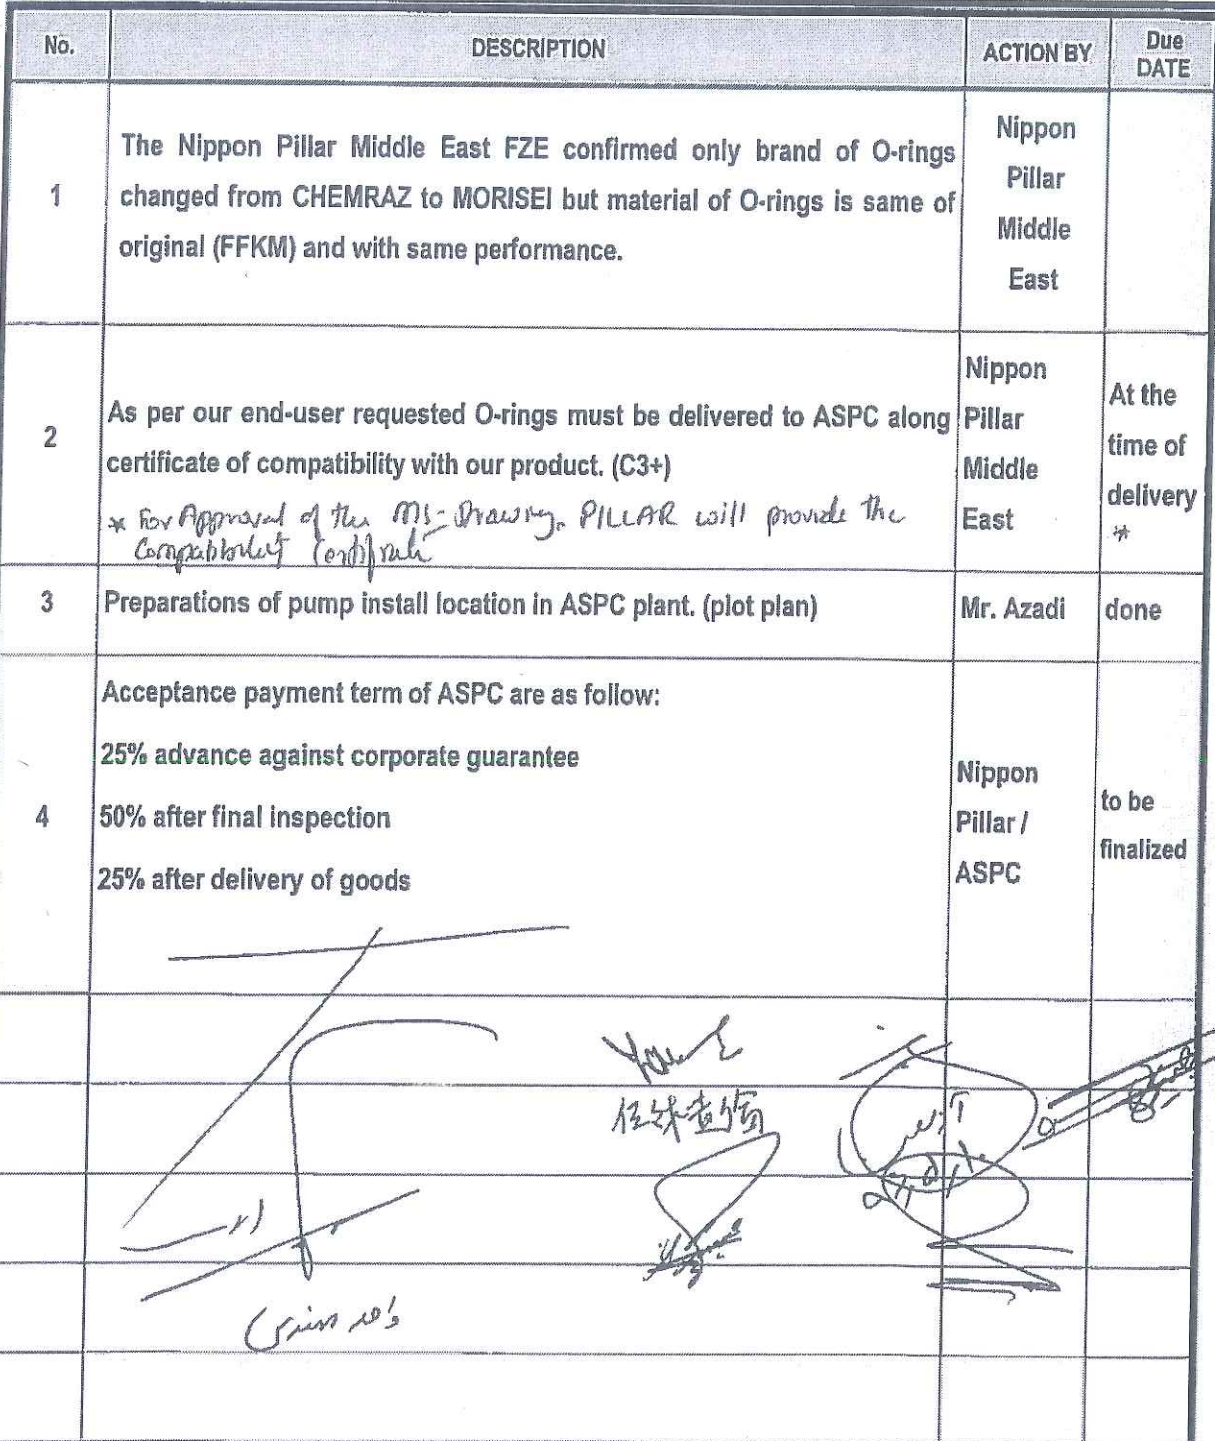 No. DESCRIPTION ACTION BY Due DATE
1
The Nippon Pillar Middle East FZE confirmed only brand of O-rings
changed from CHEMRAZ to MORISEI but material of O-rings is same of
original (FFKM) and with same performance.
Nippon
Pillar
Middle
East
2
As per our end-user requested O-rings must be delivered to ASPC along
certificate of compatibility with our product. (C3+)
* For Approval of the MS-Drawing, PILLAR will provide the
Compatibility Certificate
Nippon
Pillar
Middle
East
At the
time of
delivery
*
3
Preparations of pump install location in ASPC plant. (plot plan)
Mr. Azadi
done
4
Acceptance payment term of ASPC are as follow:
25% advance against corporate guarantee
50% after final inspection
25% after delivery of goods
Nippon
Pillar /
ASPC
to be
finalized